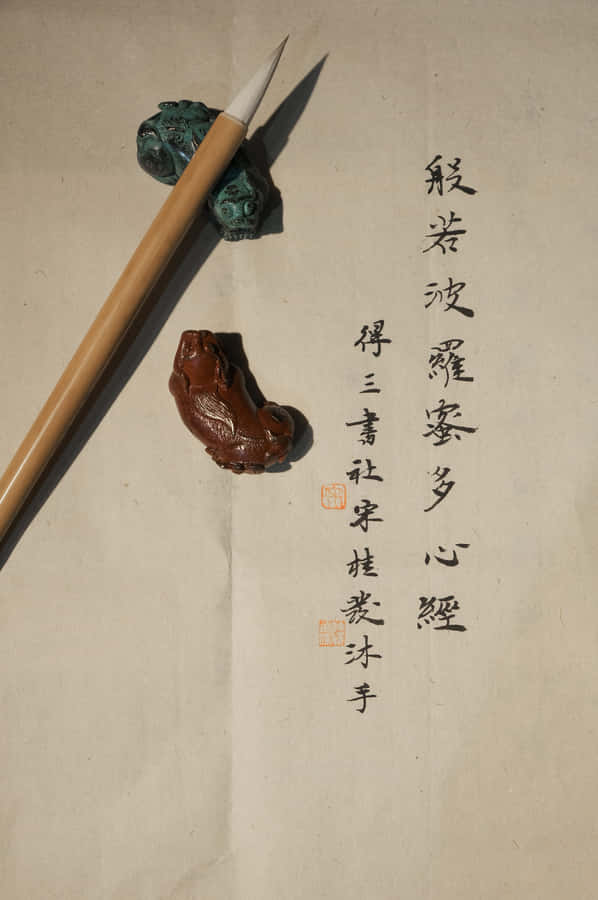 般若波羅蜜多心經
得三書社宋桂发沐手